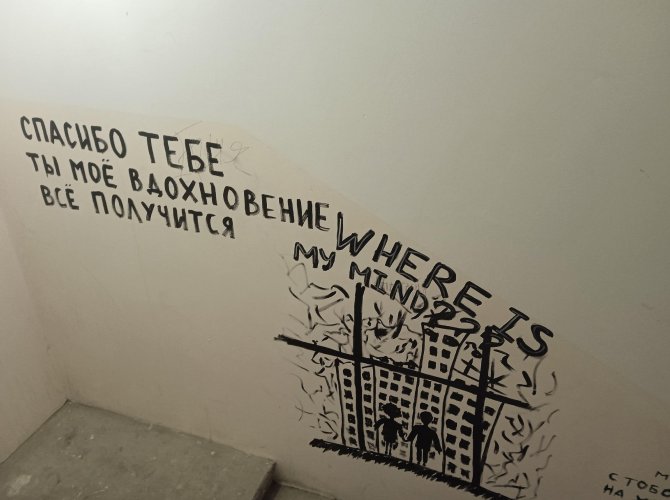 СПАСИБО ТЕБЕ
ТЫ МОЁ ВДОХНОВЕНИЕ
ВСЁ ПОЛУЧИТСЯ
WHERE IS
MY MIND???
НА